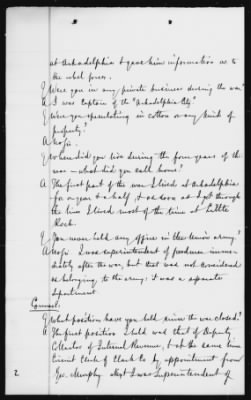 at Arkadelphia & gave him information as to
the rebel forces.
Q Were you in any private business during the war?
A I was Captain of the "Arkadelphia City."
Q Were you speculating in cotton or any kind of
property?
A No sir.
Q Where did you live during the four years of the
war - what did you call home?
A The first part of the war I lived at Arkadelphia
for a year & a half, & as soon as I got through
the lines I lived most of the time at Little
Rock.
Q You never held any office in the Union army?
A No sir I was superintendent of freedmen imme-
diately after the war, but that was not considered
as belonging to the army; it was a separate
department
Counsel.
Q What position have you held since the war closed?
A The first position I held was that of Deputy
Collector of Internal Revenue, & at the same time
Circuit Clerk of Clark Co by appointment from
Gov. Murphy Next I was Superintendent of
2